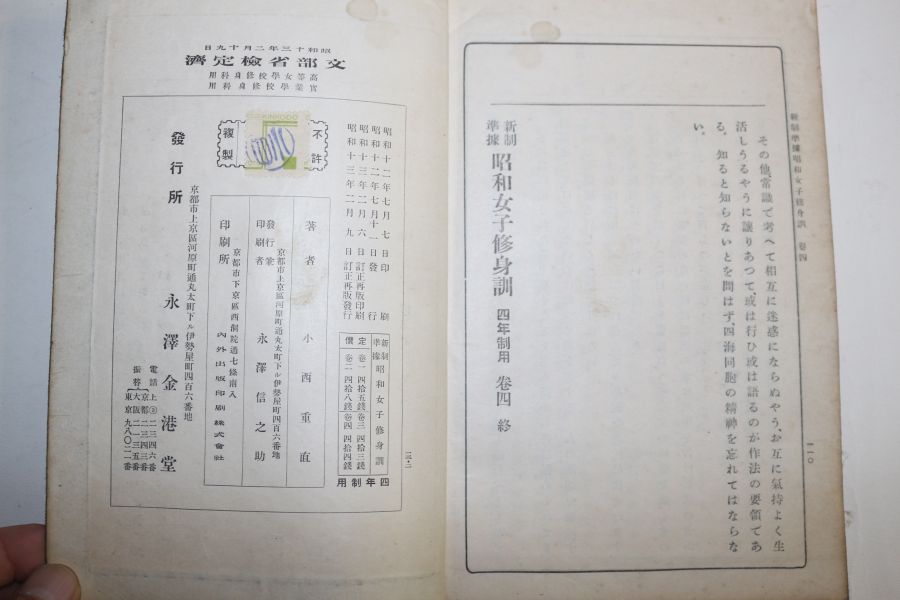 新制準據昭和女子修身訓 卷四
一一〇
その他、常識で考へて相互に迷惑にならぬやう、お互に氣持よく生
活しうるやうに讓りあつて或は行ひ或は語るのが作法の要領であ
る。知ると知らないとを問はず、四海同胞の精神を忘れてはならな
い。
新制準據 昭和女子修身訓 四年制用 卷四 終
昭和十三年二月十九日
文部省檢定濟
高等女學校修身科用
實業學校修身科用
昭和十二年七月七日印刷
昭和十二年七月十一日發行
昭和十三年二月六日訂正再版印刷
昭和十三年二月九日訂正再版發行
新制準據 昭和女子修身訓
定價
卷一 四拾五錢 卷三 四拾三錢
卷二 四拾八錢 卷四 四拾四錢
四年制用
不許複製
KINKODO
著者 小西重直
京都市上京區河原町通丸太町下ル伊勢屋町四百六番地
發行兼印刷者 永澤信之助
京都市下京區西洞院通七條南入
印刷所 內外出版印刷株式會社
發行所
京都市上京區河原町通丸太町下ル伊勢屋町四百六番地
永澤金港堂
電話上②二三四六番
振替
京都二三四三番
大阪二一三五番
東京九八〇二一番